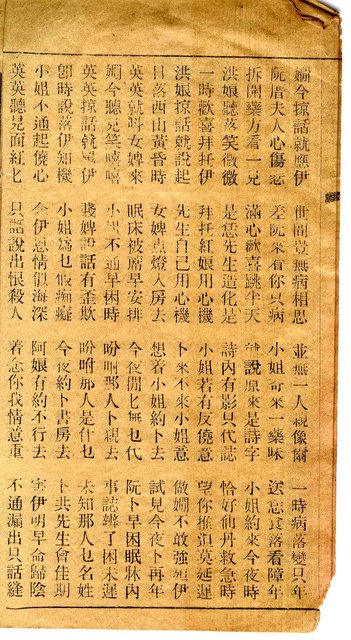 嫺今掠話就應伊 世間豈無病相思 並無一人親像爾 一時病落變只年
阮厝夫人心傷悲 差阮來看你只病 小姐寄來一藥味 送恁食落看障年
拆開藥方看一見 滿心歡喜跳半天 就說原來是詩字 小姐約來今夜時
洪娘聽落笑微微 是恁先生造化是 詩內有影只代誌 恰好仙丹救急時
一時歡喜拜托伊 拜托紅娘用心機 小姐若有反僥意 望你推迫莫延遲
洪娘掠話就說起 先生自己用心機 卜來不來小姐意 做嫺不敢強逼伊
日落西山黃昏時 女婢点燈入房去 想着小姐約卜去 試見今夜卜再年
英英就叫女婢來 眠床被席早安排 今夜閒乜無乜代 阮卜早困眠牀內
嫺今聽見笑嘻嘻 小姐不通早困時 吩咐那人卜親去 事誌了困未遲
英英掠話就應伊 賤婢說話有歪欺 吩咐那人是什乜 未知那人乜名姓
即時說落伊知機 小姐為乜假癡 今夜約卜書房去 卜共先生會佳期
小姐不通起僥心 念伊恩情似海深 阿娘有約不行去 害伊明早命歸陰
英英聽見面紅乜 只話說出恨殺人 着念你我情意重 不通漏出只話縫